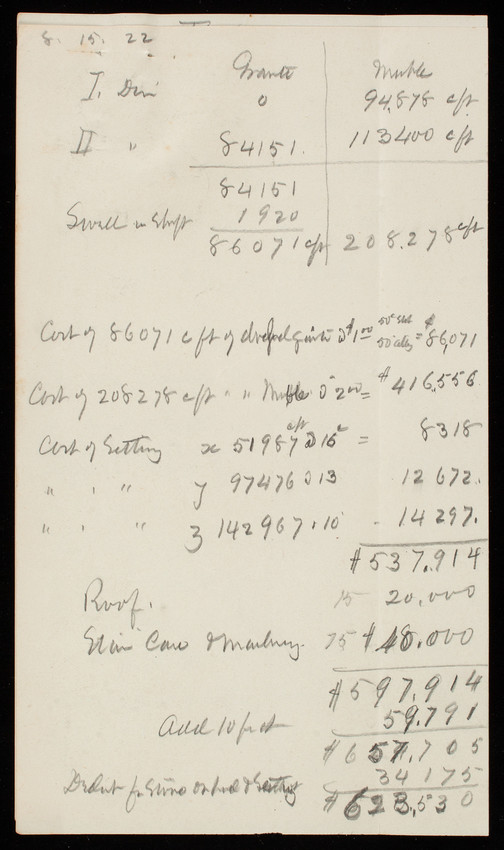 8. 15. 22
Granite Marble
I. Divn 0 94,878 c/ft
II " 84151. 113400 c/ft
84151
Swell in Shaft 1920
86071 c/ft 208.278 c/ft
Cost of 86071 c ft of granite @ $1.00 = $86,071
Cost of 208278 c/ft " " Marble @ 2.00 = $416,556
Cost of Setting x 51987 c/ft @ 16c = 8318
" " " y 97476 @ 13 12672.
" " " z 142967 " 10 14297.
$537,914
Roof. 15 20,000
Stair Case & Machinery. 75 $40,000
$597,914
Add 10 pr ct 59,791
$657,705
Deduct for Stone on hand & Setting 34175
$623,530